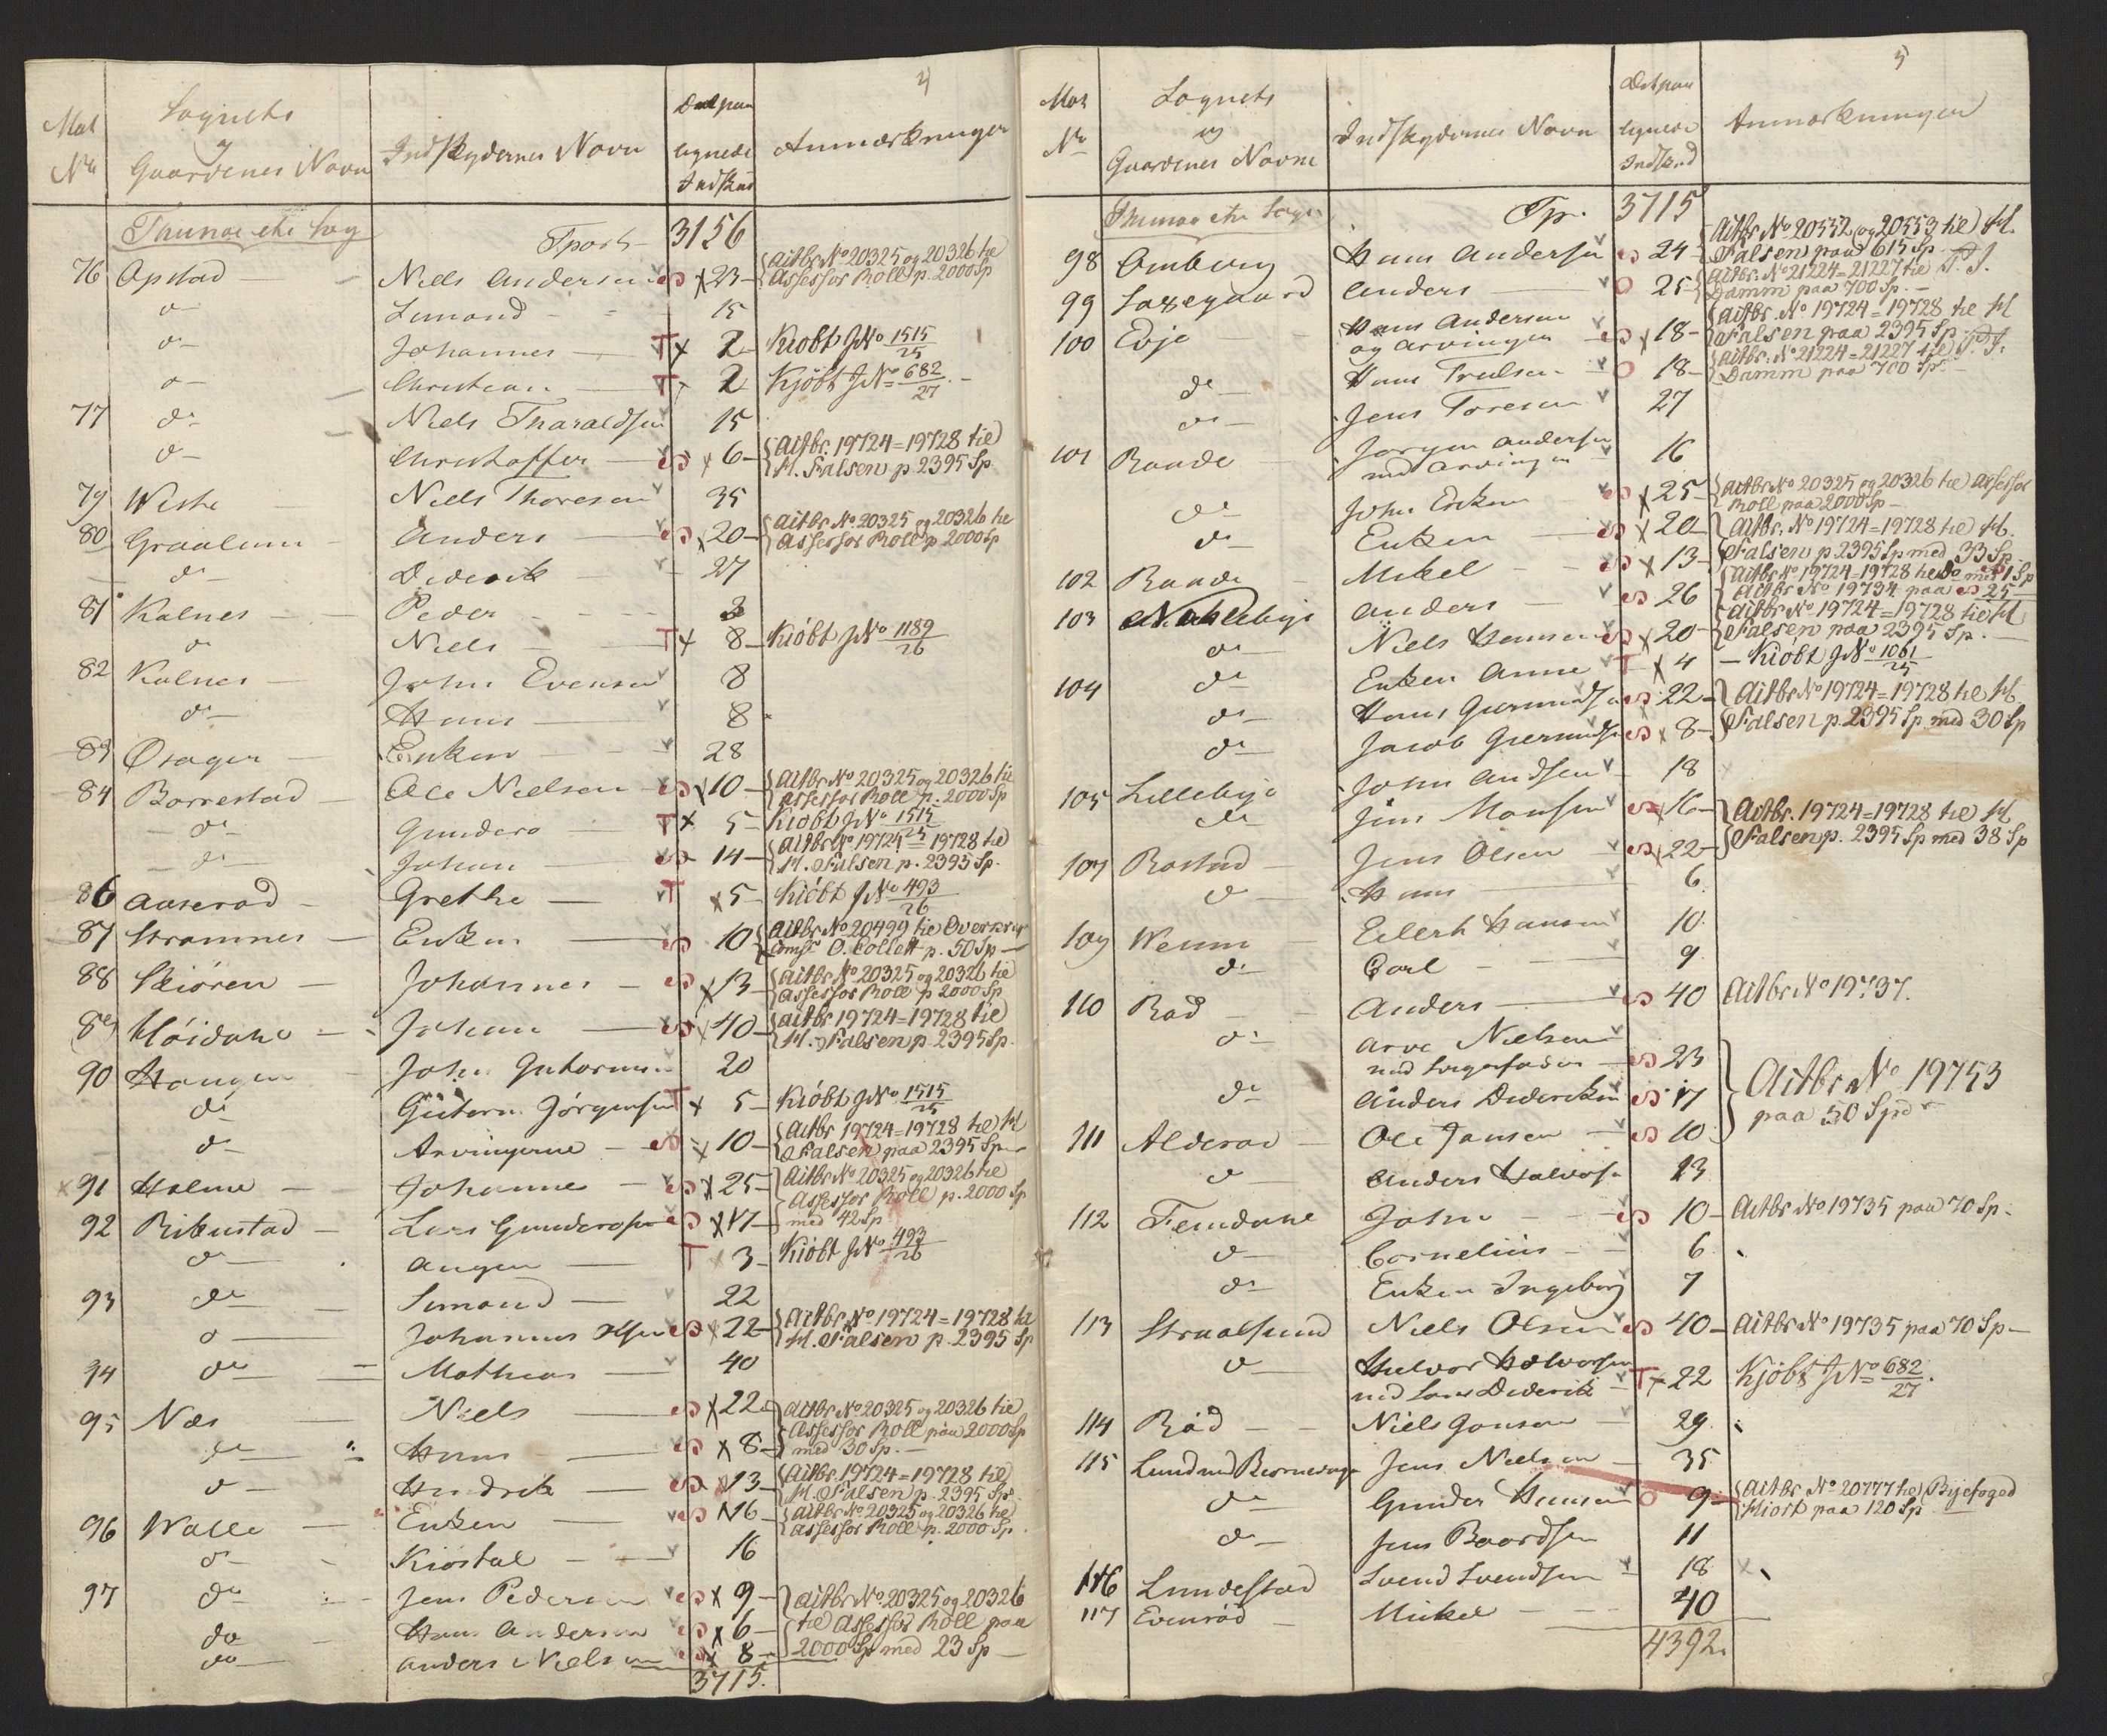 4
Mat No | Sognets og Gaardenes Navn | Indskydernes Navn | Det paalignede Indskud | Anmærkninger
Thunøe etc Sog
Tport 3156
76 Opstad — Niels Andersen 23 {Actbr No 20325 og 20326 til Assessor Roll p. 2000 Sp
do — Simond 15
do — Johannes T x 2 Kiöbt J No 1515/25
do — Christian T 2 Kjöbt J No 682/27
77 do — Niels Tharaldsen 15
do — Christoffer x 6 {Actbr. 19724=19728 til H. Falsen p 2395 Sp
79 Wiste Niels Thoresen 35
80 Graalum Anders x 20 {Actbr No 20325 og 20326 til Assessor Roll p 2000 Sp
do — Diderik 27
81 Kalnes Peder 3
do Niels T x 8 Kiöbt J No 1189/26
82 Kalnes — John Evensen 8
do — Hans 8
83 Osager — Enken 28
84 Borrestad — Ole Nielsen x 10 {Actbr No 20325 og 20326 til Assessor Roll p. 2000 Sp
do — Gunder T x 5 Kiöbt J No 1515/25
do — Johan 14 {Actbr No 19724=19728 til H. Falsen p. 2395 Sp.
86 Aaserød — Grethe T x 5 Kiöbt J No 493/26
87 Stromnes — Enken 10 {Actbr No 20499 til O. Collett p. 50 Sp
88 Skiören — Johannes x 13 {Actbr No 20325 og 20326 til Assessor Roll p 2000 Sp
89 Höidahl — Johan x 40 {Actbr 19724=19728 til H. Falsen p. 2395 Sp.
90 Haugen John Guttormsen 20
do Guttorm Jörgensen T x 5 Kiöbt J No 1515/25
do Arvingerne x 10 {Actbr 19724=19728 til H Falsen paa 2395 Sp
x 91 Holme — Johannes x 25 }Actbr No 20325 og 20326 til
92 Ribustad — Lars Gundersen x 17 }Assessor Roll p. 2000 Sp med 42 Sp
do — Augen T 3 Kiöbt J No 493/26
93 do Simond 22
do Johannes Olsen x 22 {Actbr No 19724=19728 til H. Falsen p. 2395 Sp
94 do Mathias 40
95 Næs Niels x 22 }Actbr No 20325 og 20326 til
do Hans x 8 }Assessor Roll paa 2000 Sp med 30 Sp.
do Hendrik x 13 {Actbr. 19724=19728 til H. Falsen p. 2395 Sp.
96 Walle — Enken 16 {Actbr No 20325 og 20326 til Assessor Roll p. 2000 Sp.
do Kiöstal 16
97 do Jens Pedersen x 9 }Actbr No 20325 og 20326
do Hans Andersen x 6 }til Assessor Roll paa
do Anders Nielsen x 8 }2000 Sp med 23 Sp
3715.
5
Mat No | Sognets og Gaardenes Navne | Indskydernes Navn | Det paalignede Indskud | Anmærkninger
Thunøe etc Sogn
Tp. 3715
98 Omberg Hans Andersen 24 {Actbr No 20552 og 20553 til H. Falsen paa 615 Sp
99 Saxegaard Anders 25 {Actbr. No 21224=21227 til P. J. Damm paa 700 Sp.
100 Evje Hans Andersen og Arvingen x 18 {Actbr. No 19724=19728 til H Falsen paa 2395 Sp
do — Hans Trulsen 18 {Actbr. No 21224=21227 til P. J. Damm paa 700 Sp.
do — Jens Toresen 27
101 Raade Jorgen Andersen med Arvingen 16
do John Enken x 25 {Actbr No 20325 og 20326 til Assessor Roll paa 2000 Sp
do Enken x 20 }Actbr. No 19724=19728 til H.
102 Raade Mikel x 13 }Falsen p. 2395 Sp med 33 Sp
103 Nohlebye Anders 26 {Actbr No 19724=19728 til do med 1 Sp Actbr No 19734 paa 25
do Niels Hansen x 20 {Actbr No 19724=19728 til H Falsen paa 2395 Sp.
do Enken Anne T x 4 — Kiöbt J No 1061/25
104 do Hans Gurmundsen 22 }Actbr No 19724=19728 til H.
do Jacob Gurmundsen x 8 }Falsen p. 2395 Sp med 30 Sp
do John Andsen 18
105 Lillebye Jens Monsen 16 }Actbr. 19724=19728 til H
do Jens Olsen x 22 }Falsen p. 2395 Sp med 38 Sp
107 Rostad Hans 6.
do Eilert Hansen 10.
109 Wenn Carl 9
110 Rød Anders 40 Actbr No 19737.
do Arve Nielsen med 23
do Anders Dideriksen 17 }Actbr No 19753 paa 50 Spd
111 Alderød — Ole Jansen 10
do Anders Halvors. 13
112 Femdahl John 10 Actbr No 19735 paa 70 Sp.
do Cornelius 6
do Enken Ingeborg 7
113 Straalsund Niels Olsen 40 Actbr No 19735 paa 70 Sp
do Halvor Halvorsen med Lars Diderik T x 22 Kjöbt J No 682/27.
114 Röd Niels Jonsen 29.
115 Lund med Jens Nielsen 35
do Gunder Hansen 9 {Actbr No 20777 til Byefoged Hiort paa 120 Sp
do Jens Baardsen 11
116 Lundestad Svend Svendsen 18
117 Evenröd Mickel 40
4392.